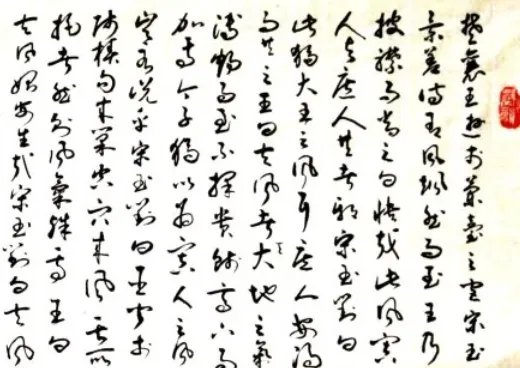 楚襄王遊於蘭臺之宮宋玉
景差侍有風颯然而至王乃
披襟而當之曰快哉此風寡
人與庶人共者邪宋玉對曰
此獨大王之風耳庶人安得
而共之王曰夫風者天地之氣
溥暢而至不擇貴賤高下而
加焉今子獨以為寡人之風
豈有說乎宋玉對曰臣聞於
師枳句來巢空穴來風其所
托者然則風氣殊焉王曰
夫風始安生哉宋玉對曰夫風